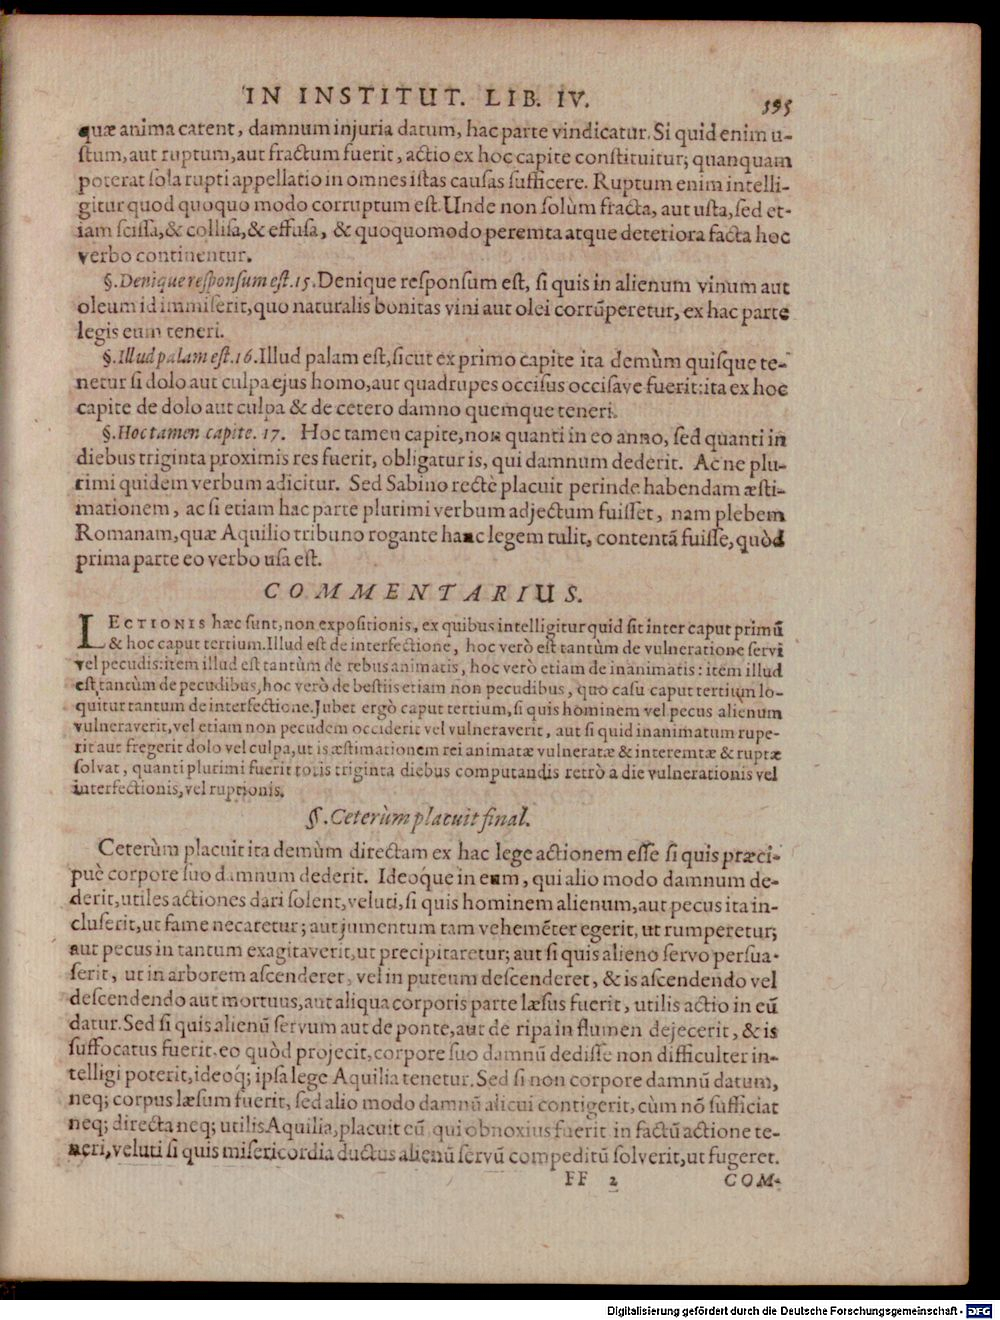 IN INSTITUT. LIB. IV. 595
quæ anima carent, damnum injuria datum, hac parte vindicatur. Si quid enim u-
ſtum, aut ruptum, aut fractum fuerit, actio ex hoc capite conſtituitur; quanquam
poterat ſola rupti appellatio in omnes iſtas cauſas ſufficere. Ruptum enim intelli-
gitur quod quoquo modo corruptum eſt. Unde non ſolùm fracta, aut uſta, ſed et-
iam ſciſſa, & colliſa, & effuſa, & quoquomodo peremta atque deteriora facta hoc
verbo continentur.
§. Denique reſponſum eſt. 15. Denique reſponſum eſt, ſi quis in alienum vinum aut
oleum id immiſerit, quo naturalis bonitas vini aut olei corrũperetur, ex hac parte
legis eum teneri.
§. Illud palam eſt. 16. Illud palam eſt, ſicut ex primo capite ita demùm quiſque te-
netur ſi dolo aut culpa ejus homo, aut quadrupes occiſus occiſave fuerit: ita ex hoc
capite de dolo aut culpa & de cetero damno quemque teneri.
§. Hoc tamen capite. 17. Hoc tamen capite, non quanti in eo anno, ſed quanti in
diebus triginta proximis res fuerit, obligatur is, qui damnum dederit. Ac ne plu-
rimi quidem verbum adicitur. Sed Sabino rectè placuit perinde habendam æſti-
mationem, ac ſi etiam hac parte plurimi verbum adjectum fuiſſet, nam plebem
Romanam, quæ Aquilio tribuno rogante hanc legem tulit, contentã fuiſſe, quòd
prima parte eo verbo uſa eſt.
COMMENTARIUS.
LECTIONIS hæc ſunt, non expoſitionis, ex quibus intelligitur quid ſit inter caput primũ
& hoc caput tertium. Illud eſt de interfectione, hoc verò eſt tantùm de vulneratione ſervi
vel pecudis: item illud eſt tantùm de rebus animatis, hoc verò etiam de inanimatis: item illud
eſt tantùm de pecudibus, hoc verò de beſtiis etiam non pecudibus, quo caſu caput tertium lo-
quitur tantum de interfectione. Jubet ergò caput tertium, ſi quis hominem vel pecus alienum
vulneraverit, vel etiam non pecudem occiderit vel vulneraverit, aut ſi quid inanimatum rupe-
rit aut fregerit dolo vel culpa, ut is æſtimationem rei animatæ vulneratæ & interemtæ & ruptæ
ſolvat, quanti plurimi fuerit totis triginta diebus computandis retrò a die vulnerationis vel
interfectionis, vel ruptionis.
§. Ceterùm placuit final.
Ceterùm placuit ita demùm directam ex hac lege actionem eſſe ſi quis præci-
puè corpore ſuo damnum dederit. Ideoq́ue in eum, qui alio modo damnum de-
derit, utiles actiones dari ſolent, veluti, ſi quis hominem alienum, aut pecus ita in-
cluſerit, ut fame necaretur; aut jumentum tam vehemẽter egerit, ut rumperetur;
aut pecus in tantum exagitaverit, ut precipitaretur; aut ſi quis alieno ſervo perſua-
ſerit, ut in arborem aſcenderet, vel in puteum deſcenderet, & is aſcendendo vel
deſcendendo aut mortuus, aut aliqua corporis parte læſus fuerit, utilis actio in eũ
datur. Sed ſi quis alienũ ſervum aut de ponte, aut de ripa in flumen dejecerit, & is
ſuffocatus fuerit, eo quòd projecit, corpore ſuo damnũ dediſſe non difficulter in-
telligi poterit, ideoq́; ipſa lege Aquilia tenetur. Sed ſi non corpore damnũ datum,
neq; corpus læſum fuerit, ſed alio modo damnũ alicui contigerit, cùm nõ ſufficiat
neq; directa neq; utilis Aquilia, placuit eũ qui obnoxius fuerit in factũ actione te-
neri, veluti ſi quis miſericordia ductus alienũ ſervũ compeditũ ſolverit, ut fugeret.
FF 2 COM-
Digitalisierung gefördert durch die Deutsche Forschungsgemeinschaft - DFG